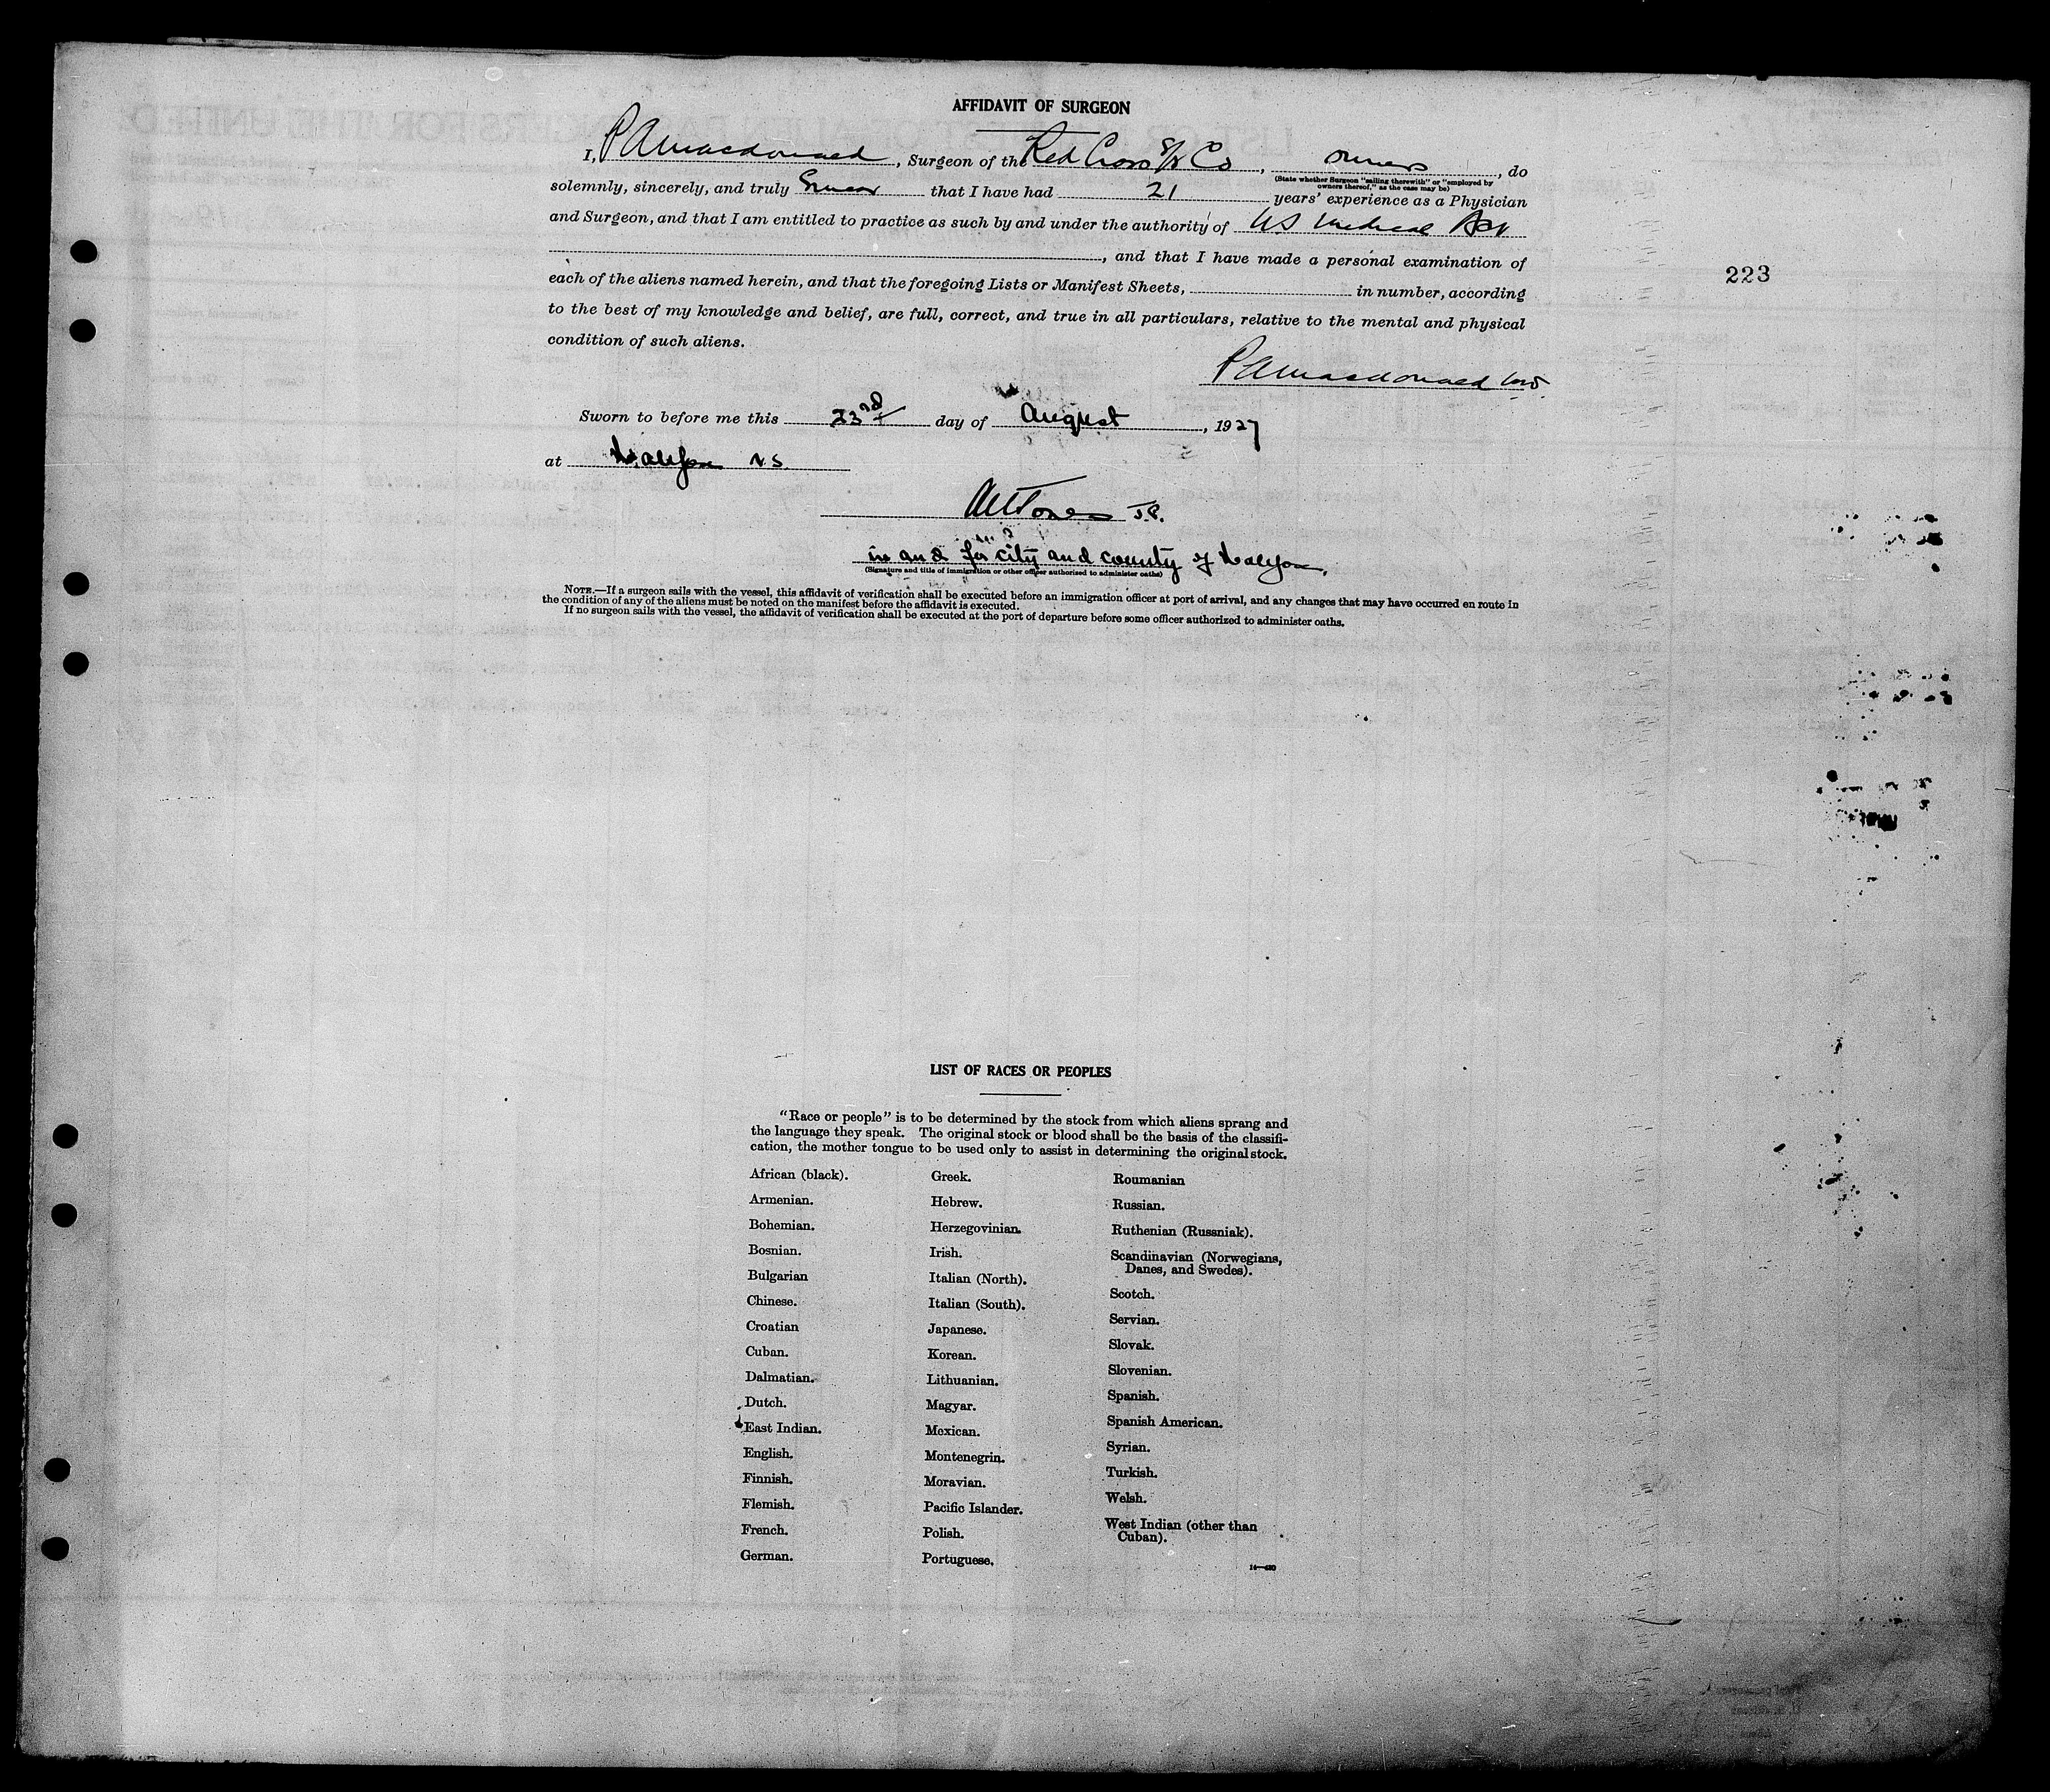 AFFIDAVIT OF SURGEON
I, P A Macdonald, Surgeon of the Red Cross S/S Co, owners, do
(State whether Surgeon "sailing therewith" or "employed by
owners thereof," as the case may be)
solemnly, sincerely, and truly Swear that I have had 21 years' experience as a Physician
and Surgeon, and that I am entitled to practice as such by and under the authority of Medical Act
, and that I have made a personal examination of
each of the aliens named herein, and that the foregoing Lists or Manifest Sheets, in number, according
to the best of my knowledge and belief, are full, correct, and true in all particulars, relative to the mental and physical
condition of such aliens.
P A Macdonald MD.
Sworn to before me this 23rd day of August, 1927
at Halifax N.S.
Jones J.P.
in and for city and county of Halifax.
(Signature and title of immigration or other officer authorized to administer oaths)
NOTE.—If a surgeon sails with the vessel, this affidavit of verification shall be executed before an immigration officer at port of arrival, and any changes that may have occurred en route in
the condition of any of the aliens must be noted on the manifest before the affidavit is executed.
If no surgeon sails with the vessel, the affidavit of verification shall be executed at the port of departure before some officer authorized to administer oaths.
223
LIST OF RACES OR PEOPLES
"Race or people" is to be determined by the stock from which aliens sprang and
the language they speak. The original stock or blood shall be the basis of the classifi-
cation, the mother tongue to be used only to assist in determining the original stock.
African (black).
Armenian.
Bohemian.
Bosnian.
Bulgarian
Chinese.
Croatian
Cuban.
Dalmatian.
Dutch.
East Indian.
English.
Finnish.
Flemish.
French.
German.
Greek.
Hebrew.
Herzegovinian.
Irish.
Italian (North).
Italian (South).
Japanese.
Korean.
Lithuanian.
Magyar.
Mexican.
Montenegrin.
Moravian.
Pacific Islander.
Polish.
Portuguese.
Roumanian
Russian.
Ruthenian (Russniak).
Scandinavian (Norwegians,
Danes, and Swedes).
Scotch.
Servian.
Slovak.
Slovenian.
Spanish.
Spanish American.
Syrian.
Turkish.
Welsh.
West Indian (other than
Cuban).